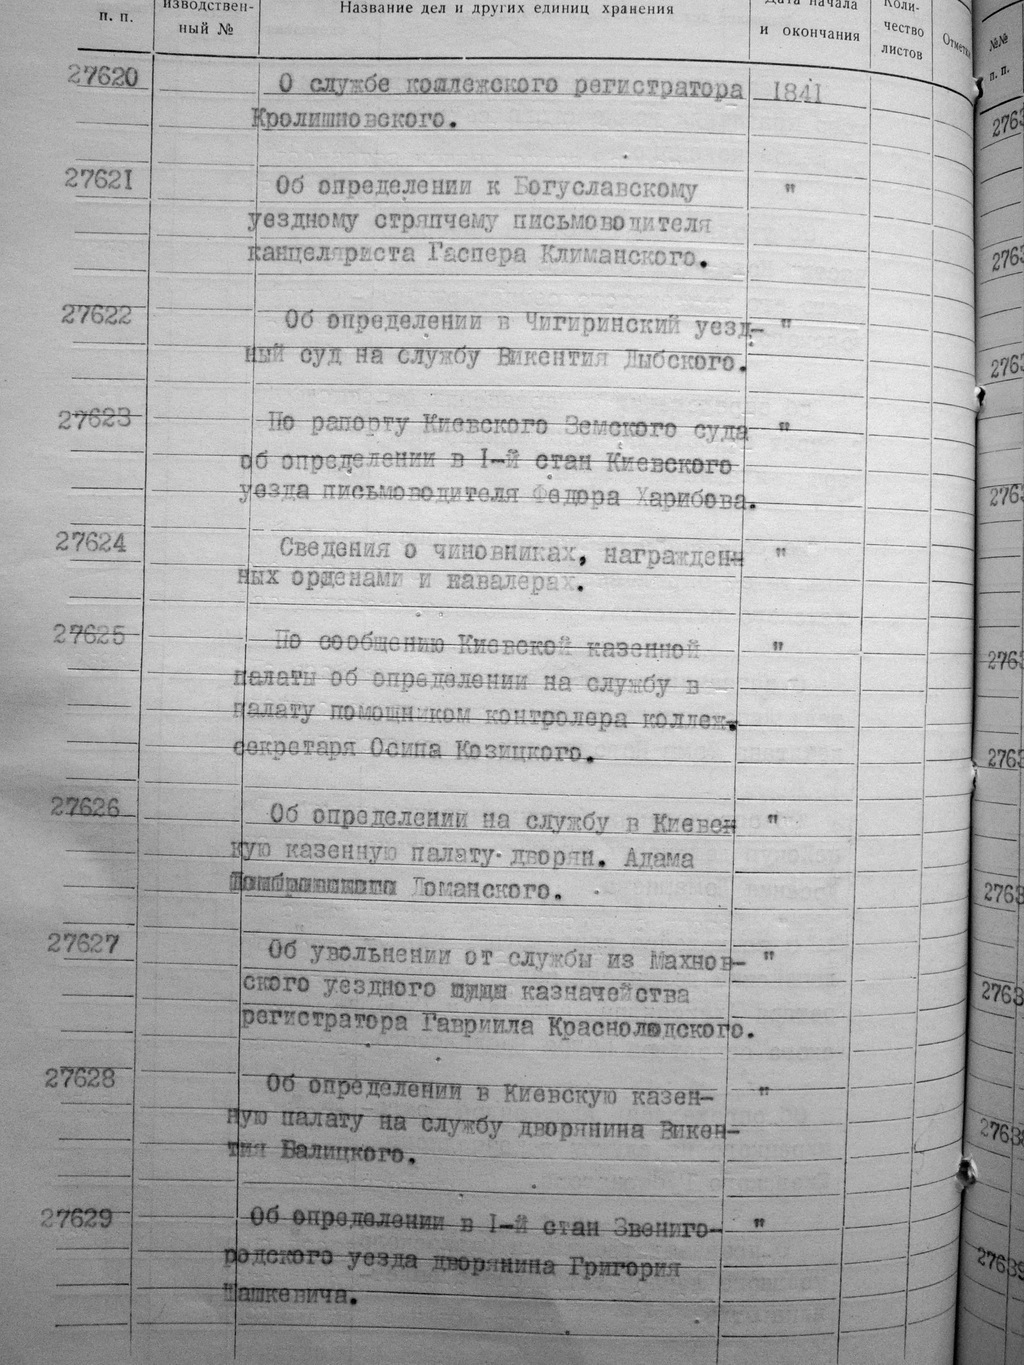 п. п.
изводствен-
ный №
Название дел и других единиц хранения
Дата начала
и окончания
Коли-
чество
листов
Отметк
№№
п. п.
27620 О службе коллежского регистратора 1841
Кролишновского.
27621 Об определении к Богуславскому "
уездному стряпчему письмоводителя
канцеляриста Гаспера Климанского.
27622 Об определении в Чигиринский уезд- "
ный суд на службу Викентия Дыбского.
27623 По рапорту Киевского Земского суда "
об определении в I-й стан Киевского
уезда письмоводителя Федора Харибова.
27624 Сведения о чиновниках, награжден- "
ных орденами и кавалерах.
27625 По сообщению Киевской казенной "
палаты об определении на службу в
палату помощником контролера коллеж.
секретаря Осипа Козицкого.
27626 Об определении на службу в Киевск "
кую казенную палату дворян. Адама
Доманского.
27627 Об увольнении от службы из Махнов- "
ского уездного казначейства
регистратора Гавриила Краснолюдского.
27628 Об определении в Киевскую казен- "
ную палату на службу дворянина Викен-
тия Валицкого.
27629 Об определении в I-й стан Звениго- "
родского уезда дворянина Григория
Шашкевича.